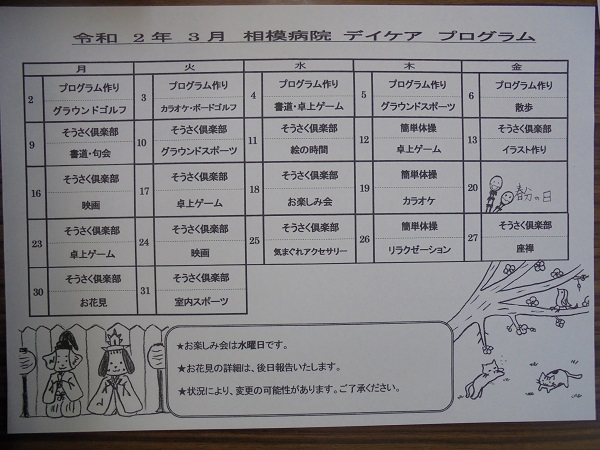 令和 2年 3月 相模病院 デイケア プログラム
月 火 水 木 金
2 プログラム作り グラウンドゴルフ
3 プログラム作り カラオケ・ボードゴルフ
4 プログラム作り 書道・卓上ゲーム
5 プログラム作り グラウンドスポーツ
6 プログラム作り 散歩
9 そうさく倶楽部 書道・句会
10 そうさく倶楽部 グラウンドスポーツ
11 そうさく倶楽部 絵の時間
12 簡単体操 卓上ゲーム
13 そうさく倶楽部 イラスト作り
16 そうさく倶楽部 映画
17 そうさく倶楽部 卓上ゲーム
18 そうさく倶楽部 お楽しみ会
19 簡単体操 カラオケ
20 春分の日
23 そうさく倶楽部 卓上ゲーム
24 そうさく倶楽部 映画
25 そうさく倶楽部 気まぐれアクセサリー
26 簡単体操 リラクゼーション
27 そうさく倶楽部 座禅
30 そうさく倶楽部 お花見
31 そうさく倶楽部 室内スポーツ
★お楽しみ会は水曜日です。
★お花見の詳細は、後日報告いたします。
★状況により、変更の可能性があります。ご了承ください。